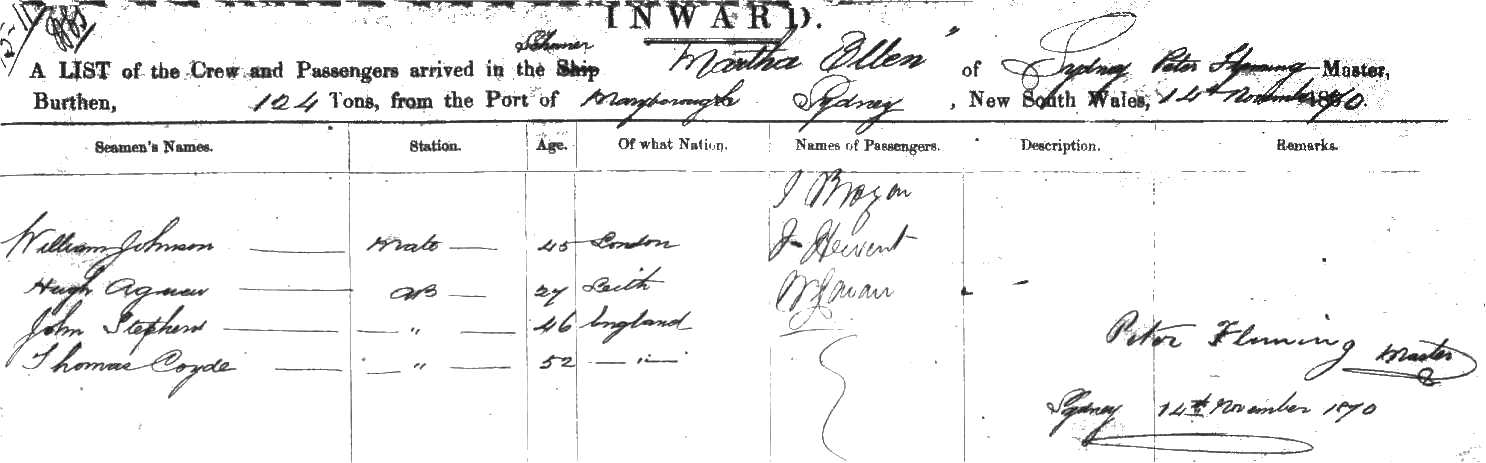 INWARD.
Schooner
A LIST of the Crew and Passengers arrived in the Ship Martha Ellen" of Sydney Peter Fleming Master,
Burthen, 124 Tons, from the Port of Maryborough Sydney, New South Wales, 14th November 1870.
Seamen's Names. Station. Age. Of what Nation. Names of Passengers. Description. Remarks.
J
William Johnson Mate 45 London J
Hugh Agnew AB 27 Leith
John Stephens " 46 England
Thomas Coyde " 52 "
Peter Fleming Master
Sydney 14th November 1870